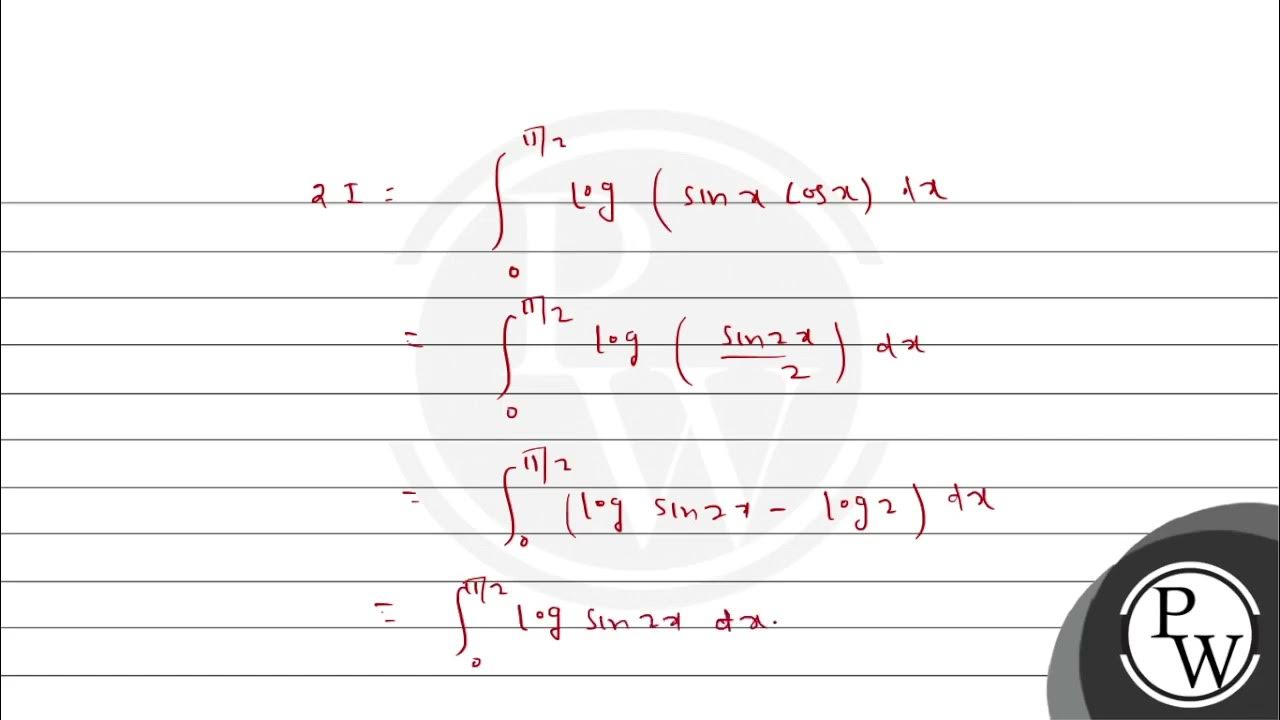 2I = ∫₀^π/2 log (sin x cos x) dx
= ∫₀^π/2 log (sin2x / 2) dx
= ∫₀^π/2 (log sin2x - log2) dx
= ∫₀^π/2 log sin2x dx.
P
W
P
W